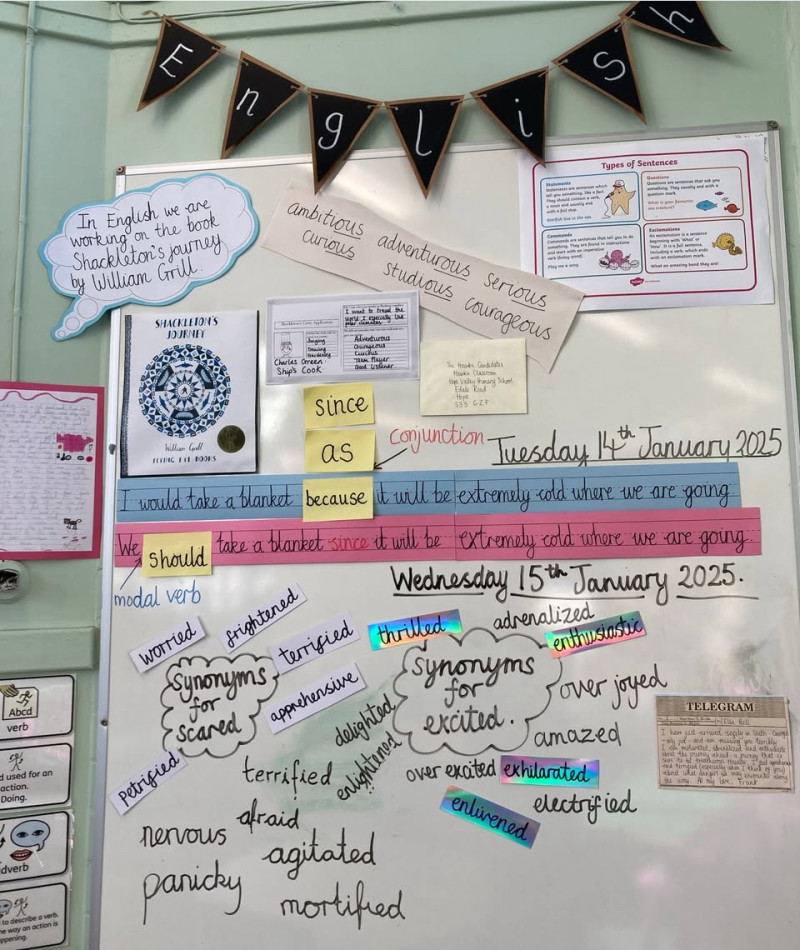 English
In English we are
working on the book
Shackleton's journey
by William Grill.
ambitious adventurous serious
curious studious courageous
Types of Sentences
Statements
Questions
Questions are sentences that ask you
something. They usually end with a
question mark.
Commands
Commands are sentences that tell you to do
something. They are found in instructions
Exclamations
An exclamation is a sentence
beginning with 'What' or
'How'. It is a full sentence,
including a verb, which ends
with an exclamation mark.
What an amazing band they are!
SHACKLETON'S
JOURNEY
William Grill
FLYING EYE BOOKS
Shackleton's Crew Application
I want to travel the
world I especially like
polar climates
Singing
Charles Green
Ship's Cook
Adventurous
Courageous
Curious
Team Player
Good Listener
The Hawks Candidates
Hawks Classroom
Hope Valley Primary School
Edale Road
Hope
S33 6ZF
since
as
conjunction
Tuesday 14th January 2025
I would take a blanket because it will be extremely cold where we are going.
We should take a blanket since it will be extremely cold where we are going.
modal verb
Wednesday 15th January 2025.
Synonyms
for
scared
worried
frightened
terrified
apprehensive
petrified
terrified
afraid
nervous
agitated
panicky
mortified
Synonyms
for
excited.
thrilled
adrenalized
enthusiastic
over joyed
delighted
enlightened
amazed
over excited
exhilarated
enlivened
electrified
TELEGRAM
Abcd
verb
d used for an
action.
Doing.
dverb
to describe a verb.
the way an action is
ppening.